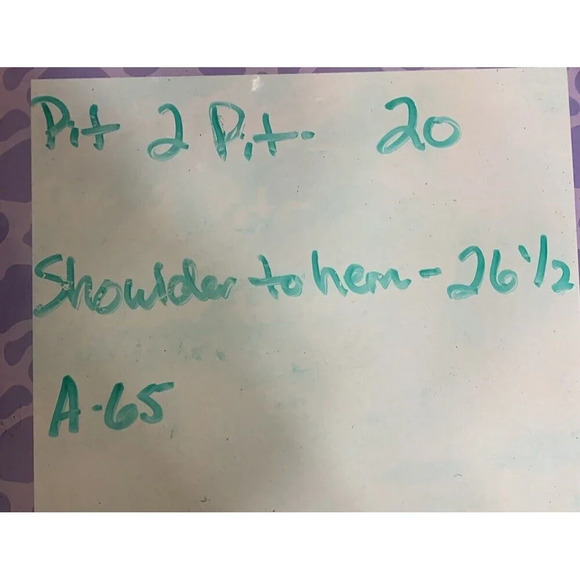 Pit 2 Pit. 20
Shoulder to hem - 26 1/2
A-65